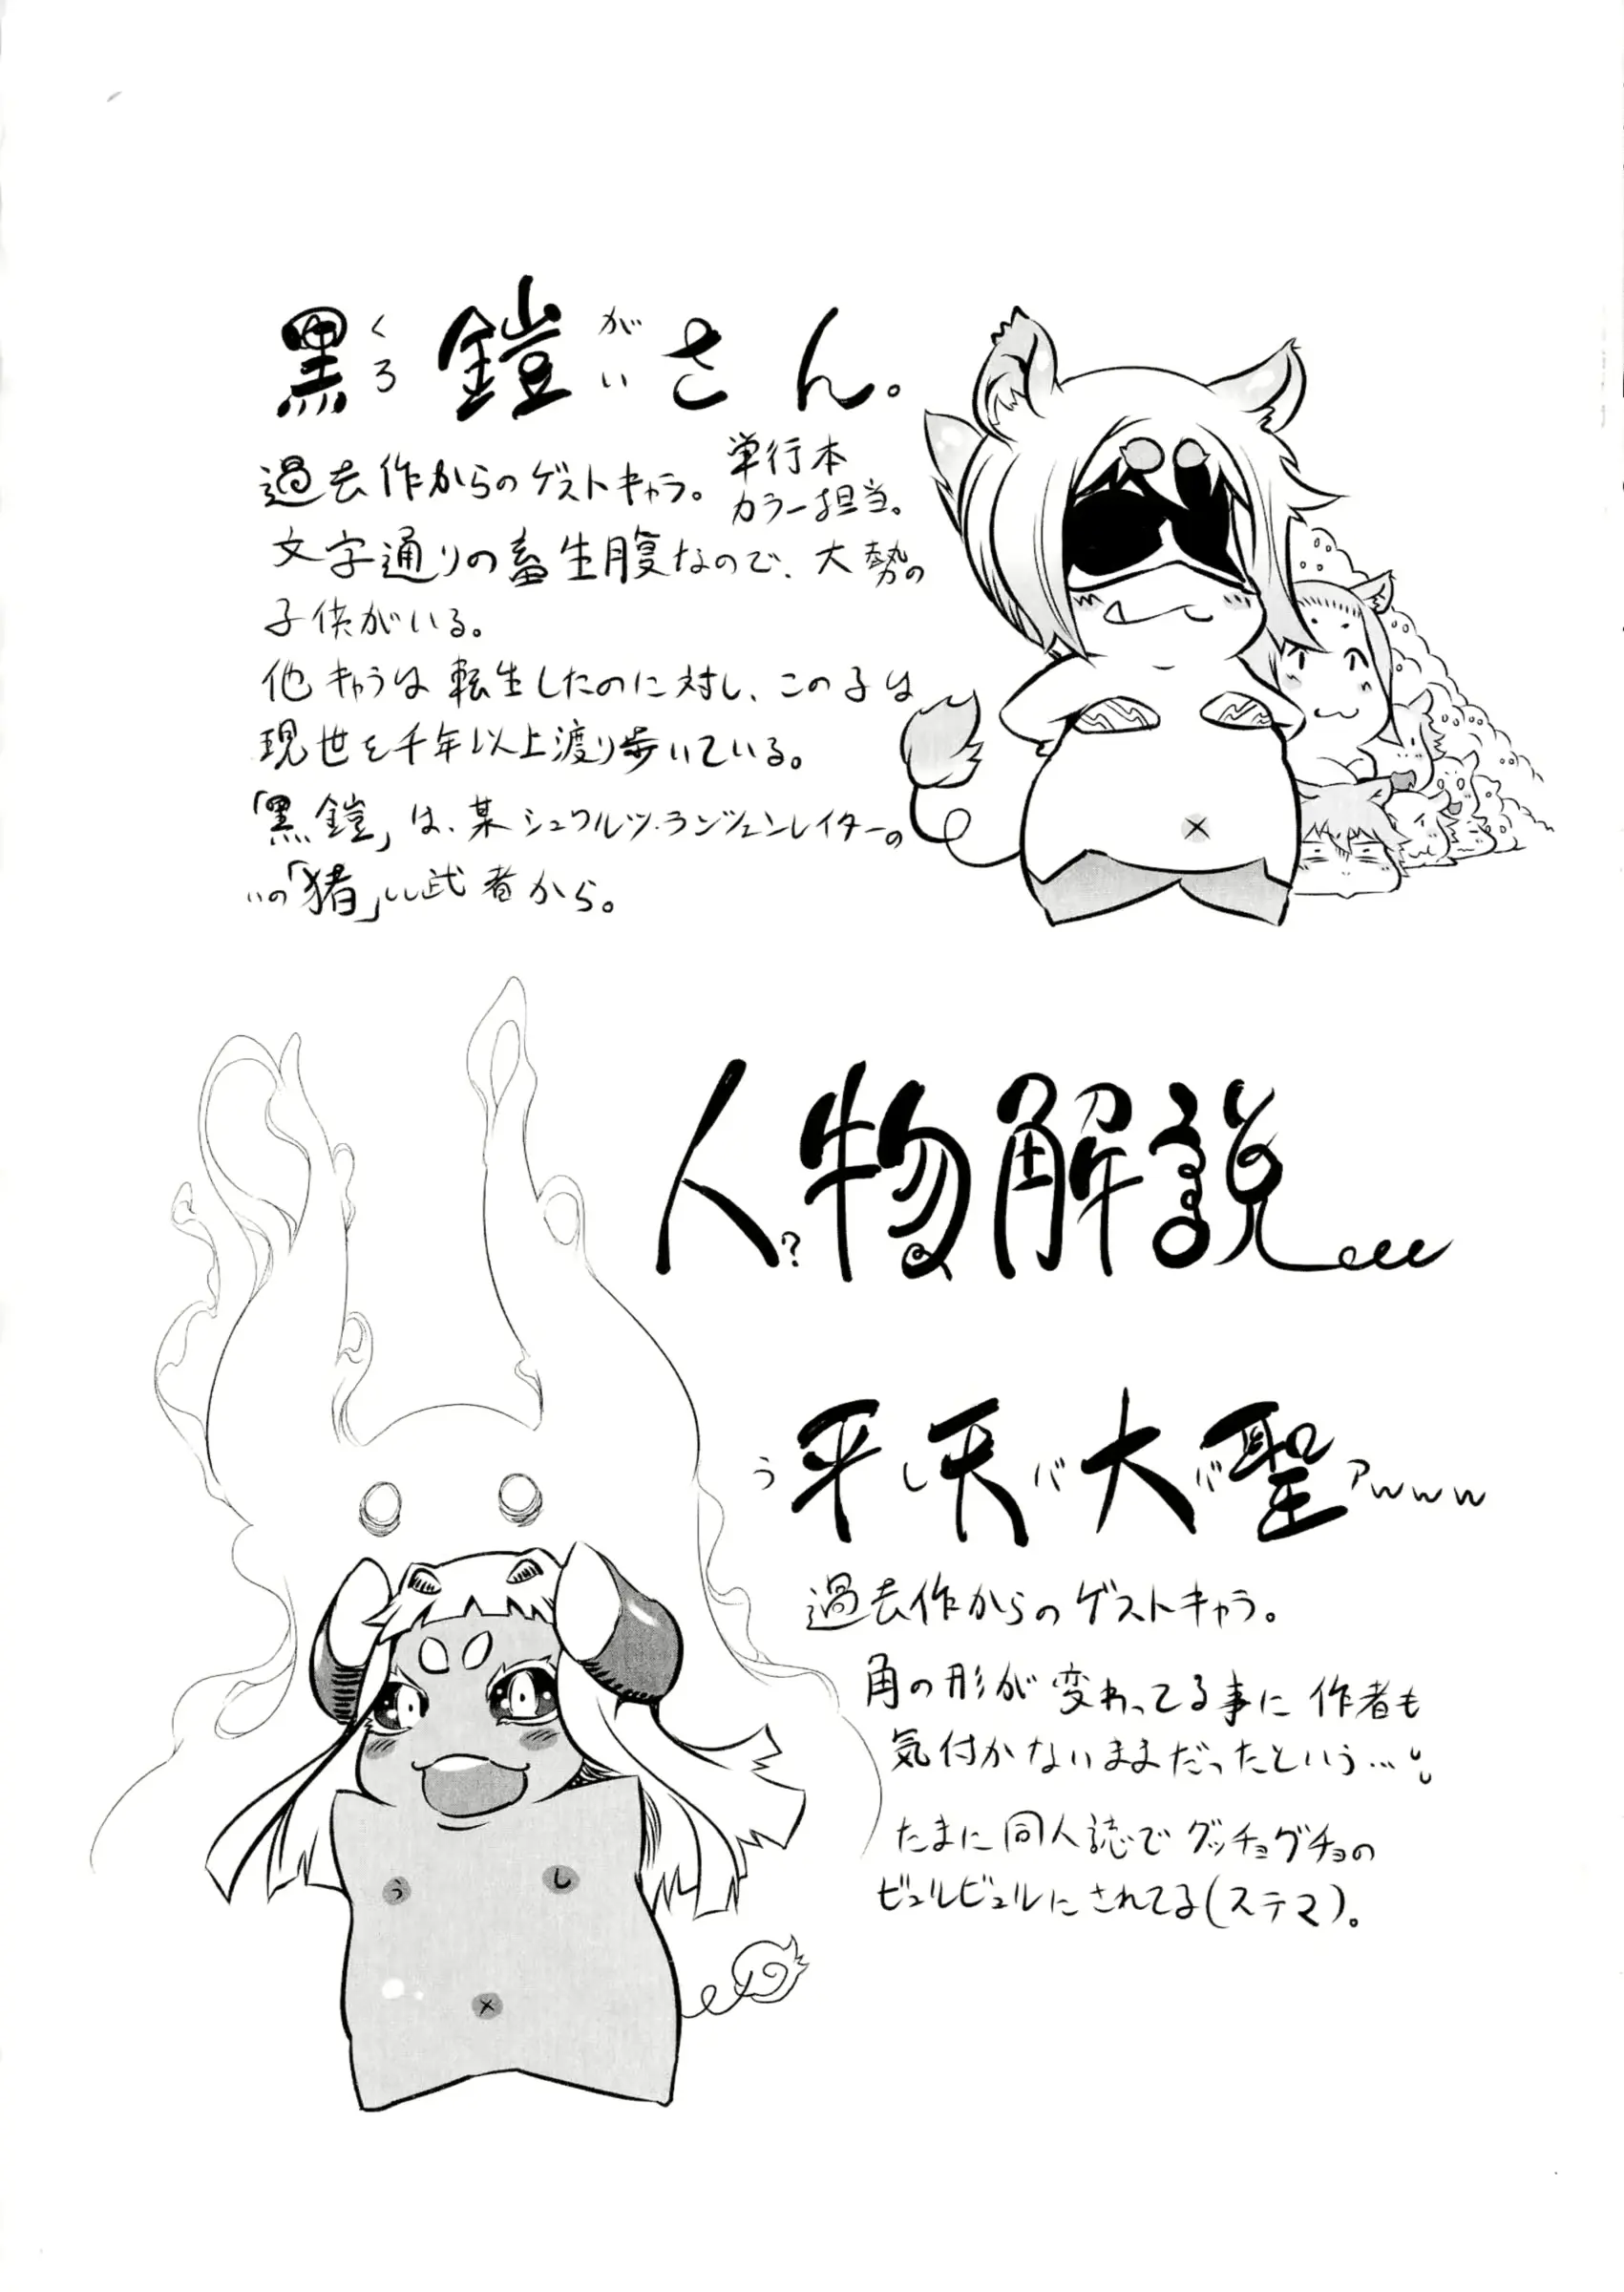 黒鎧さん。
くろ がい
過去作からのゲストキャラ。
単行本
カラー担当。
文字通りの畜生腹なので、大勢の
子供がいる。
他キャラは転生したのに対し、この子は
現世を千年以上渡り歩いている。
「黒鎧」は、某シュワルツ・ランツェンレイターの
「猪」い武者から。
人?物解説
平天大聖
うしババアwww
過去作からのゲストキャラ。
角の形が変わってる事に作者も
気付かないままだったという…
たまに同人誌でグッチョグチョの
ビュルビュルにされてる(ステマ)。
う
し